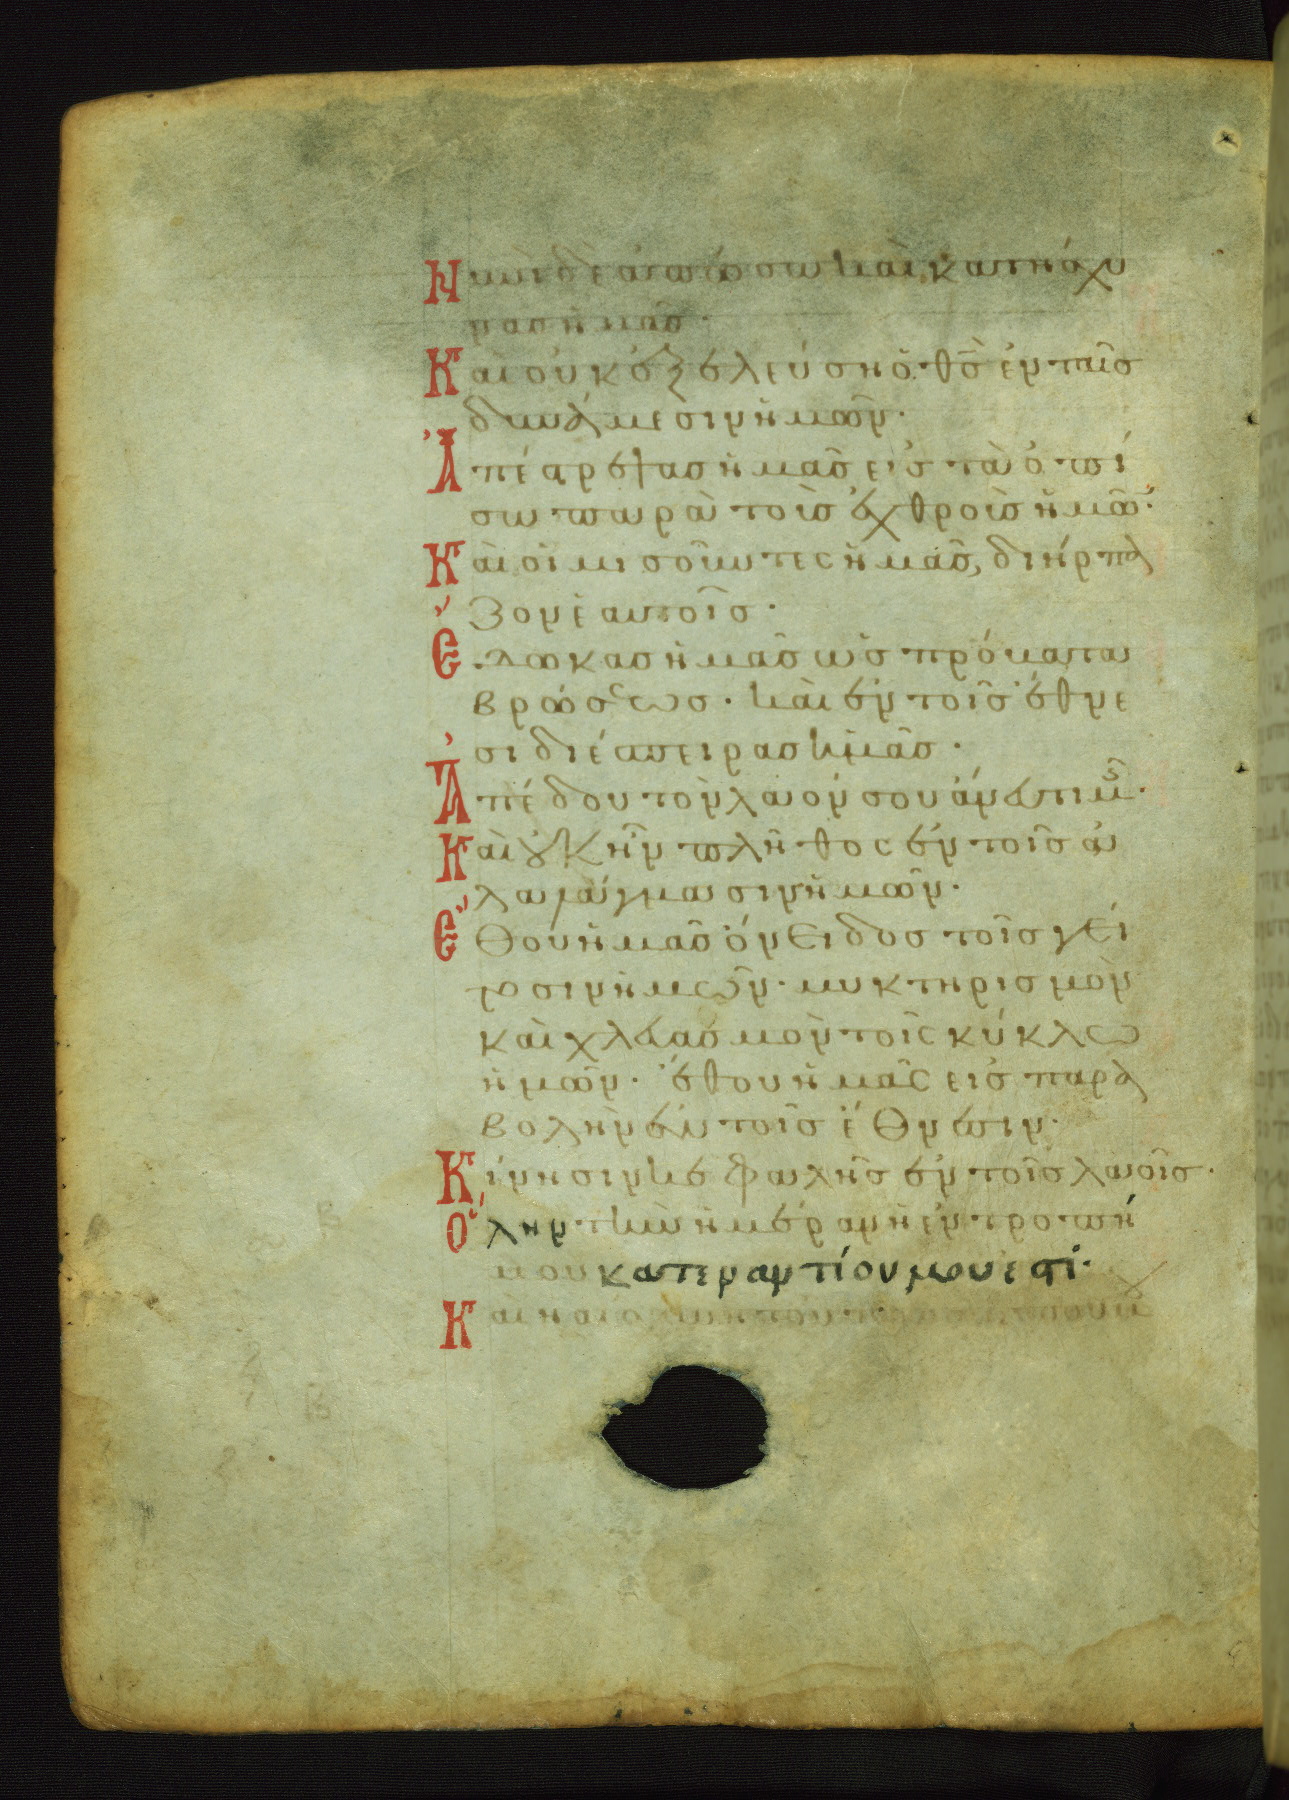 Νυνὶ δὲ ἀπώσω καὶ κατήσχυ
νας ἡμᾶς·
Καὶ οὐκ ἐξελεύση ὁ θς̅ ἐν ταῖς
δυνάμεσιν ἡμῶν·
Ἀπέστρεψας ἡμᾶς εἰς τὰ ὀπί
σω παρὰ τοὺς ἐχθροὺς ἡμῶν·
Καὶ οἱ μισοῦντες ἡμᾶς, διήρπα
ζον ἑαυτοῖς·
Ἔδωκας ἡμᾶς ὡς πρόβατα
βρώσεως· καὶ ἐν τοῖς ἔθνε
σι διέσπειρας ἡμᾶς·
Ἀπέδου τὸν λαόν σου ἄνευ τιμῆς·
Καὶ οὐκ ἦν πλῆθος ἐν τοῖς ἀ
λαλάγμασιν ἡμῶν·
Ἔθου ἡμᾶς ὄνειδος τοῖς γεί
τοσιν ἡμῶν· μυκτηρισμὸν
καὶ χλευασμὸν τοῖς κύκλω
ἡμῶν· ἔθου ἡμᾶς εἰς παρα
βολὴν ἐν τοῖς ἔθνεσιν·
Κίνησιν κεφαλῆς ἐν τοῖς λαοῖς·
Ὅλην τὴν ἡμέραν ἡ ἐντροπή
μου κατεναντίον μου ἐστί·
Καὶ ἡ αἰσχύνη τοῦ προσώπου μου